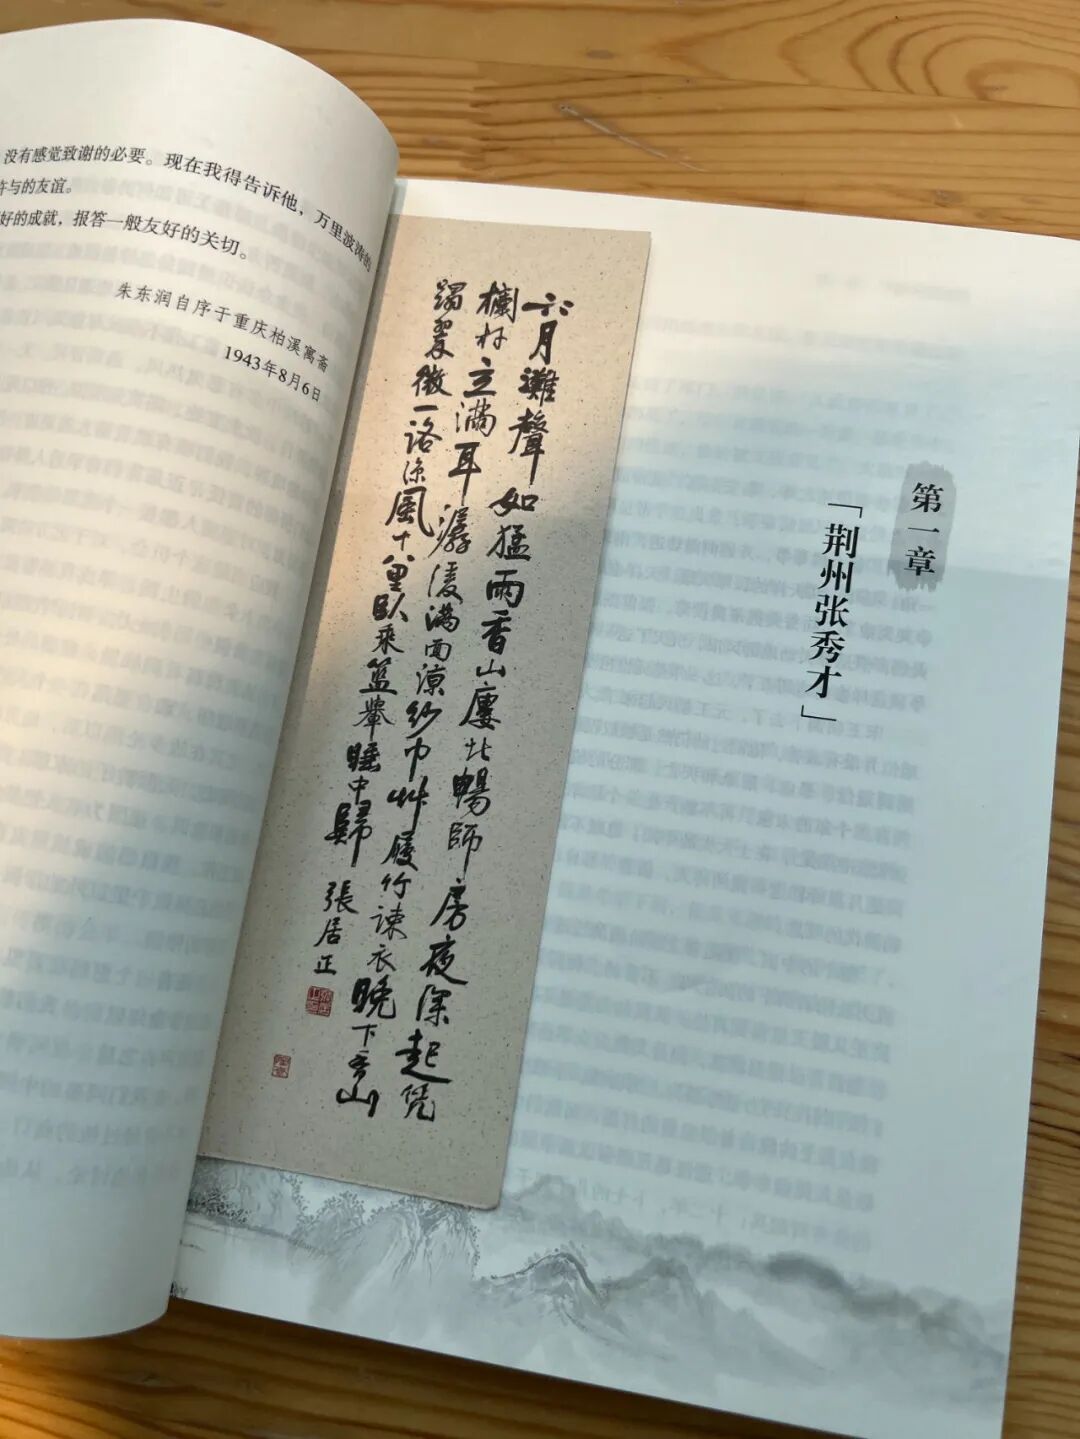 没有感觉致谢的必要。现在我得告诉他，万里波涛的
与的友谊。
好的成就，报答一般友好的关切。
朱东润自序于重庆柏溪寓斋
1943年8月6日
六月灘聲如猛雨香山廔北暢師房夜深起凭
欄杆立滿耳潺湲滿面涼紗巾艸履竹疎衣晚下香山
蹋翠微一路涼風十八里臥乘籃轝睡中歸
張居正
第一章
「荆州张秀才」